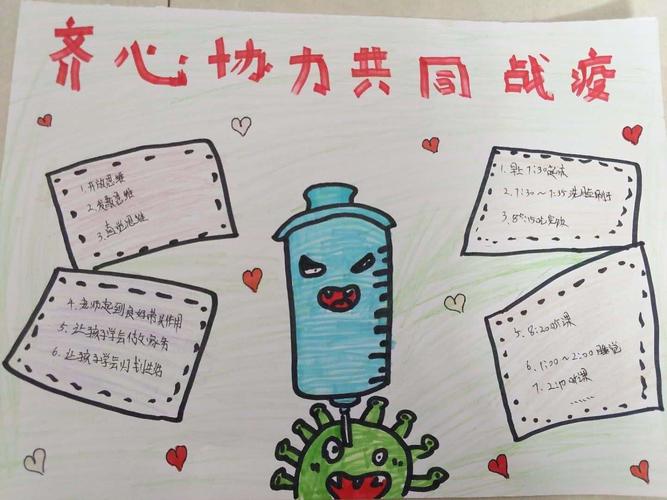 齐心协力共同战疫
1.开放思维
2.发散思维
3.直觉思维
4.老师起到良好带头作用
5.让孩子学会做家务
6.让孩子学会计划生活
1.早7:30起床
2.7:30～7:35洗脸刷牙
3.8:00吃完饭
5.8:20听课
6.1:00～2:00睡觉
7.2:10听课
……